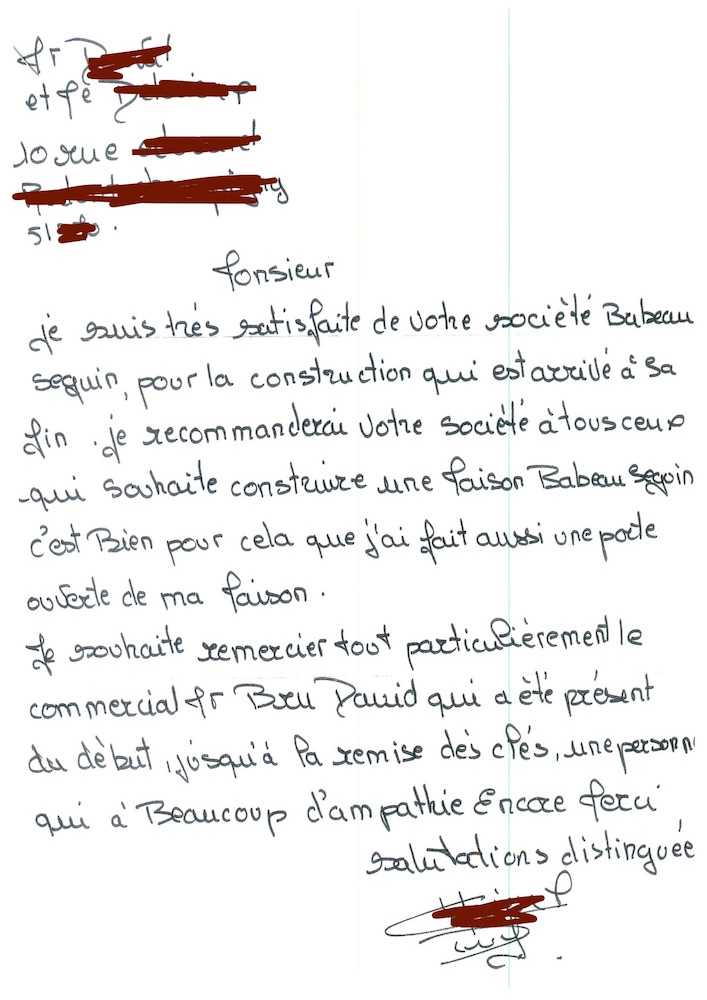 Mr
et Me
10 rue
51
Monsieur
je suis très satisfaite de votre société Babeau
seguin, pour la construction qui est arrivé à sa
fin. je recommanderai votre société à tous ceux
qui souhaite construire une Maison Babeau Seguin
c'est Bien pour cela que j'ai fait aussi une porte
ouverte de ma Maison.
Je souhaite remercier tout particulièrement le
commercial Mr Bru David qui a èté présent
du dèbut, jusqu'à la remise des clés, une personn
qui à Beaucoup d'ampathie Encore Merci
salutations distinguée